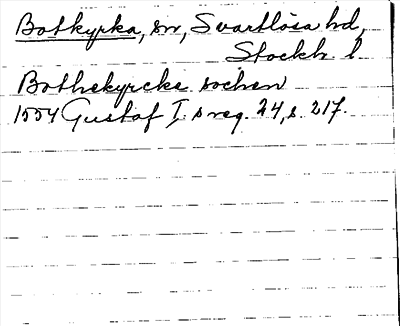 Botkyrka, sn, Svartlösa hd,
Stockh. l.
Bothekyrcke sochen
1554 Gustaf I, s reg. 24, s. 217.